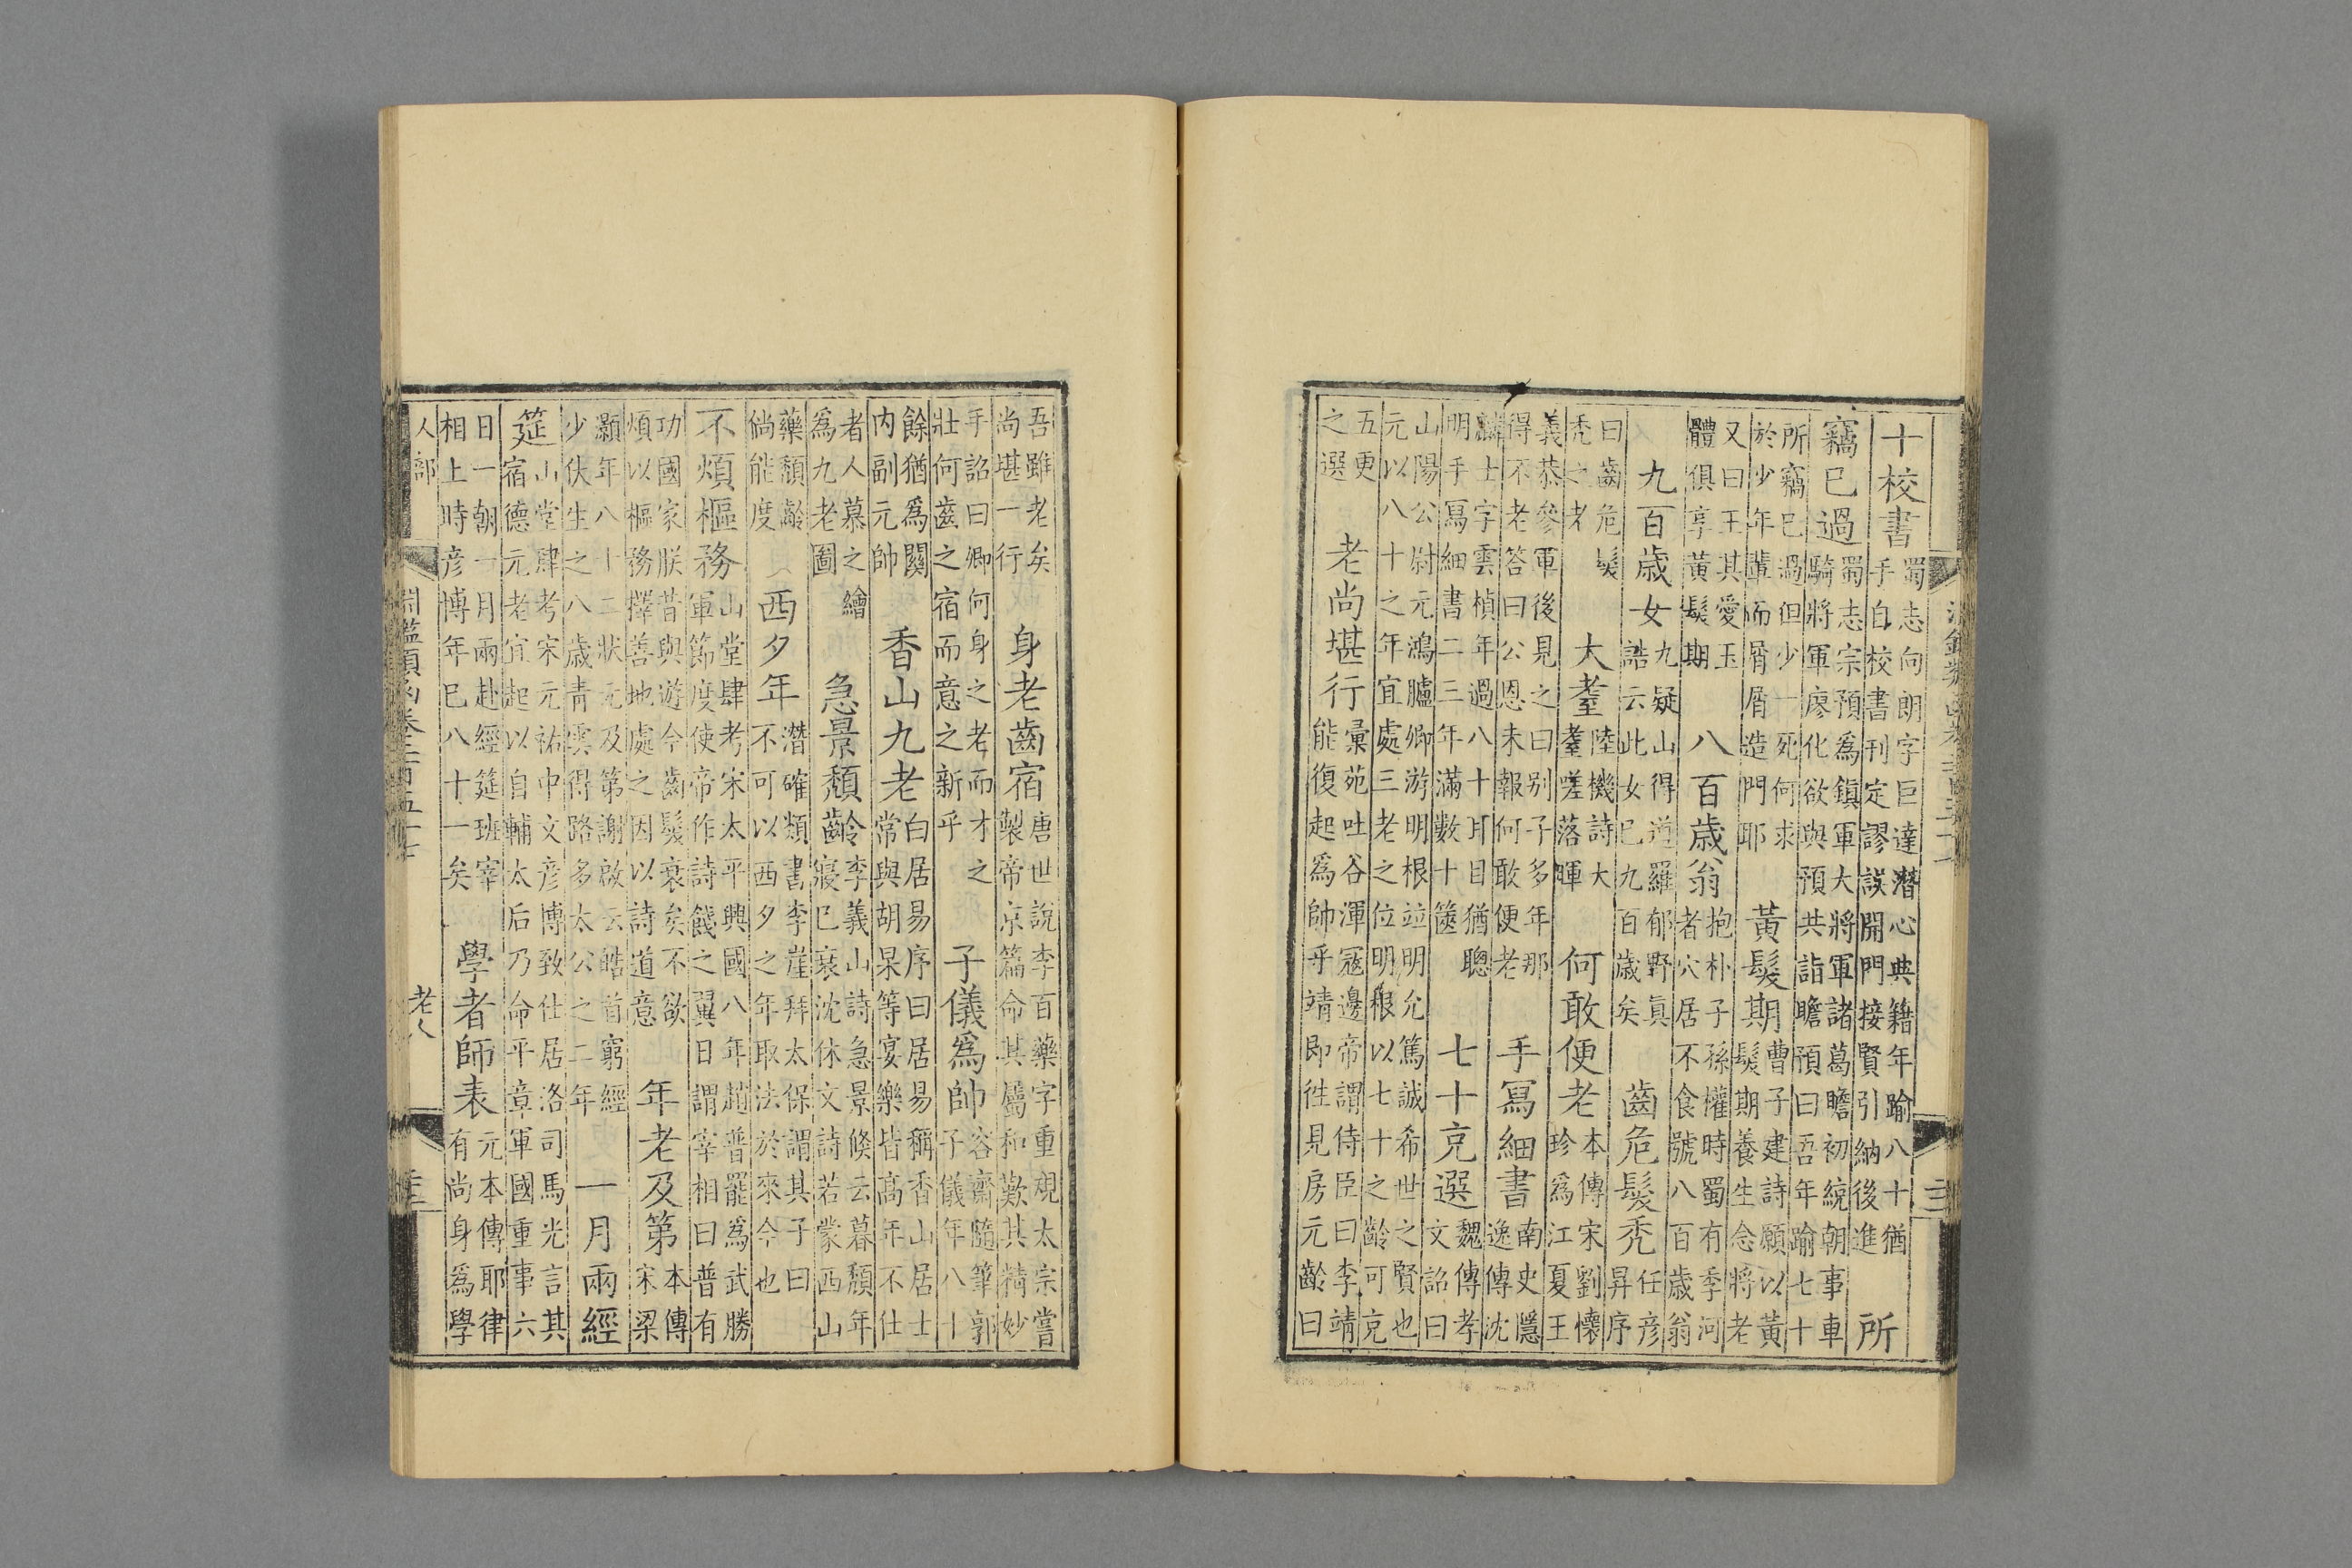 十校書 蜀志向朗字巨達潛心典籍年踰八十猶手自校書刊定謬誤開門接賢引納後進 所
竊已過 蜀志宗預為鎮軍大將軍諸葛瞻初統朝事車騎將軍廖化欲與預共詣瞻預曰吾年踰七十
所竊已過但少一死何求於少年輩而屑屑造門耶 黃髮期 曹子建詩願以黃髮期養生念將老
又曰王其愛玉體俱享黃髮期 八百歳翁 抱朴子孫權時蜀有季河者穴居不食號八百歳翁
九百歳女 九疑山得道羅郁野真誥云此女已九百歳矣 齒危髮秃 任彦昇序
曰齒危髮秃之老 大耋 陸機詩大耋嗟落暉 何敢便老 本傳宋劉懷珍為江夏王
義恭參軍後見之曰别子多年那得不老答曰公恩未報何敢便老 手冩細書 南史隱逸傳沈
麟士字雲楨年過八十耳目猶聰明手冩細書二三年滿數十篋 七十克選 魏傳孝文詔曰
山陽公尉元鴻臚卿游明根竝明允篤誠希世之賢也元以八十之年宜處三老之位明根以七十之齡可克
五更之選 老尚堪行 彙苑吐谷渾寇邊帝謂侍臣曰李靖能復起為帥乎靖即徃見房元齡曰
吾雖老矣尚堪一行 身老齒宿 唐世說李百藥字重規太宗嘗製帝京篇命其屬和歎其精妙
手詔曰卿何身之老而才之壯何齒之宿而意之新乎 子儀為帥 容齋隨筆郭子儀年八十
餘猶為關内副元帥 香山九老 白居易序曰居易稱香山居士常與胡杲等宴樂皆高年不仕
者人慕之繪為九老圖 急景頹齡 李義山詩急景倏云暮頹年寖已衰沈休文詩若蒙西山
藥頹齡倘能度 西夕年 潛確類書李崖拜太保謂其子曰不可以西夕之年取法於來今也
不煩樞務 山堂肆考宋太平興國八年趙普罷為武勝軍節度使帝作詩餞之翼日謂宰相曰普有
功國家朕昔與遊今齒髮衰矣不欲煩以樞務擇善地處之因以詩道意 年老及第 本傳宋梁
灝年八十二狀元及第謝啟云皓首窮經少伏生之八歳青雲得路多太公之二年 一月兩經
筵 山堂肆考宋元祐中文彦博致仕居洛司馬光言其宿德元老宜起以自輔太后乃命平章軍國重事六
日一朝一月兩赴經筵班宰相上時彦博年已八十一矣 學者師表 元本傳耶律有尚身為學
人部 老人